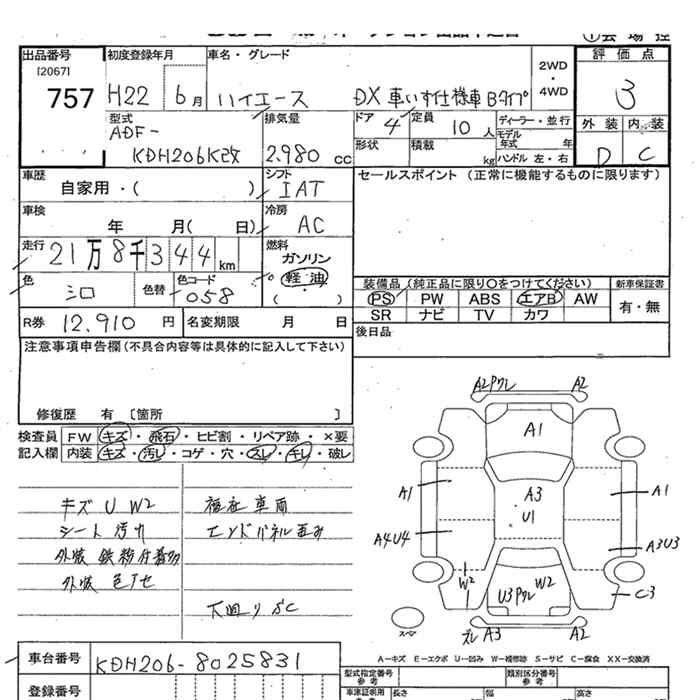 出品番号 初度登録年月 車名・グレード 評価点
[2067] 757 H22 6月 ハイエース DX 車いす仕様車 Bタイプ 2WD・4WD 3
型式 排気量 ドア 4 定員 10人 ディーラー・並行 外装 内装
ADF- モデル年式 年
KDH206K改 2.980 cc 形状 積載 kg ハンドル 左・右 D C
車歴 シフト セールスポイント (正常に機能するものに限ります)
自家用・( ) IAT
車検 冷房
年 月( 日) AC
走行 燃料
21万8千344km ガソリン
軽油
色 色替 色コード ( )
シロ 058
装備品 (純正品に限り○をつけてください) 新車保証書
PS PW ABS エアB AW 有・無
SR ナビ TV カワ
R券 12,910 円 名変期限 月 日 後日品
注意事項申告欄 (不具合内容等は具体的に記入して下さい)
修復歴 有 [箇所 ]
検査員 FW キズ・飛石・ヒビ割・リペア跡・×要
記入欄 内装 キズ・汚レ・コゲ・穴・スレ・キレ・破レ
キズ U W2 福祉車両
シート 汚れ エンドパネル歪み
外装 鉄粉付着多
外装 色アセ
下回り SC
A2 Pワレ A2
A1
A1 A3 A1
U1
A4U4 A3U3
W2 U3Pワレ W2 C3
スペア ズレ A3 A2
A-キズ E-エクボ U-凹み W-補修跡 S-サビ C-腐食 XX-交換済
車台番号 KDH206-8025831 型式指定番号 参考 類別区分番号 参考
登録番号 長さ 幅 高さ